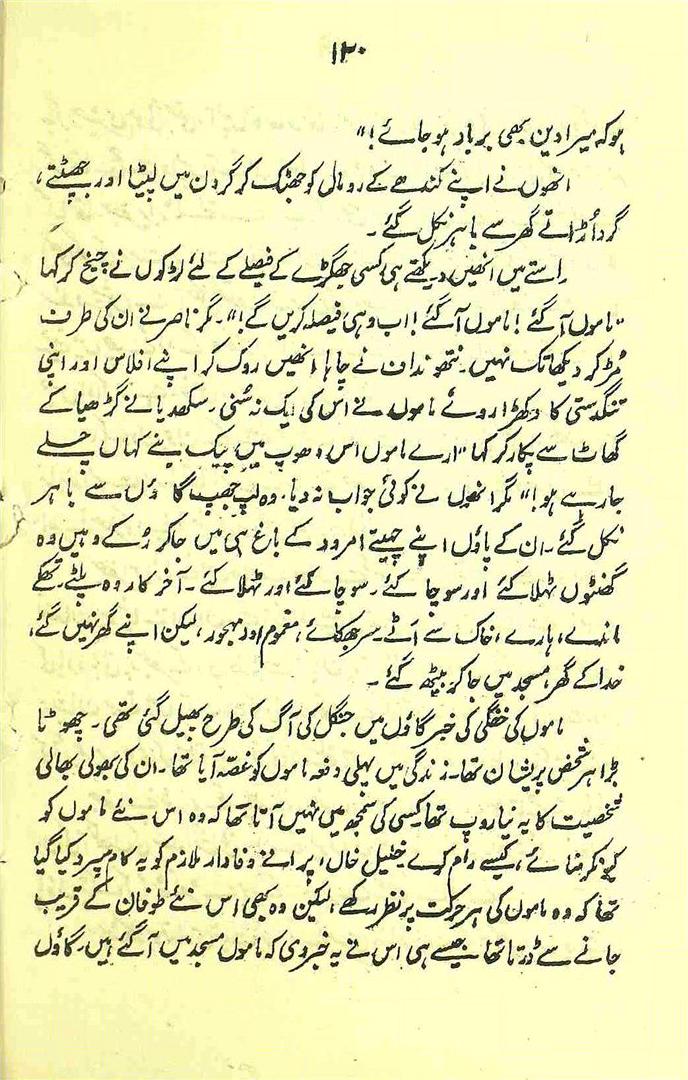 ۱۲۰
ہو کہ میرا دین بھی برباد ہو جائے!"
انھوں نے اپنے کندھے کے رومال کو جھٹک کر گردن میں لپیٹا اور جھپٹتے،
گرد اُڑاتے گھر سے باہر نکل گئے۔
راستے میں انھیں دیکھتے ہی کسی جھگڑے کے فیصلے کے لئے لڑکوں نے چیخ کر کہا
"ماموں آ گئے! ماموں آ گئے! اب وہی فیصلہ کریں گے!"۔ مگر ناصر نے ان کی طرف
مُڑ کر دیکھا تک نہیں۔ نتھو نداف نے چاہا انھیں روک کر اپنے افلاس اور اپنی
تنگدستی کا دکھڑا روئے ماموں نے اس کی ایک نہ سُنی۔ سکھدیا نے گڑھیا کے
گھاٹ سے پکار کر کہا "ارے ماموں اس دھوپ میں پیک بنے کہاں چلے
جا رہے ہو!" مگر انھوں نے کوئی جواب نہ دیا۔ وہ لپ جھپ گاؤں سے باہر
نکل گئے۔ ان کے پاؤں اپنے چہیتے امرود کے باغ ہی میں جا کر رُکے وہیں وہ
گھنٹوں ٹہلا کئے اور سوچا کئے۔ سوچا کئے اور ٹہلا کئے۔ آخر کار وہ پلٹے۔ تھکے
ماندے، ہارے، خاک سے اَٹے۔ سر جھکائے، مغموم اور مہجور، لیکن اپنے گھر نہیں گئے،
خدا کے گھر، مسجد میں جا کر بیٹھ گئے۔
ماموں کی خفگی کی خبر گاؤں میں جنگل کی آگ کی طرح پھیل گئی تھی۔ چھوٹا
بڑا ہر شخص پریشان تھا۔ زندگی میں پہلی دفعہ ماموں کو غصّہ آیا تھا۔ ان کی بھولی بھالی
شخصیت کا یہ نیا روپ تھا کسی کی سمجھ میں نہیں آتا تھا کہ وہ اس نئے ماموں کو
کیونکر منائے، کیسے رام کرے خلیل خاں، پرانے وفادار ملازم کو یہ کام سپرد کیا گیا
تھا کہ وہ ماموں کی ہر حرکت پر نظر رکھے، لیکن وہ بھی اس نئے طوفان کے قریب
جانے سے ڈرتا تھا جیسے ہی اس نے یہ خبر دی کہ ماموں مسجد میں آ گئے ہیں۔ گاؤں